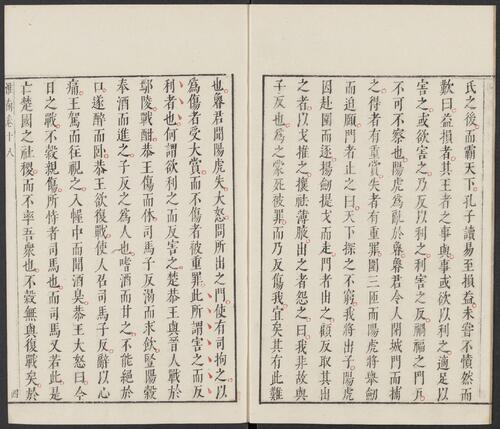 氏之後而霸天下孔子讀易至損益未嘗不憤然而
歎曰益損者其王者之事與事或欲以利之適足以
害之或欲害之乃反以利之利害之反禍福之門凡
不可不察也陽虎爲亂於魯魯君令人閉城門而捕
之得者有重賞失者有重罪圍三匝而陽虎將舉劒
而迫頤門者止之曰天下探之不窮我將出子陽虎
因赴圍而逐揚劒提戈而走門者出之顧反取其出
之者以戈推之攘祛薄腋出之者怨之曰我非故與
子反也爲之蒙死被罪而乃反傷我宜矣其有此難
也魯君聞陽虎失大怒問所出之門使有司拘之以
爲傷者受大賞而不傷者被重罪此所謂害之而反
利者也何謂欲利之而反害之楚恭王與晉人戰於
鄢陵戰酣恭王傷而休司馬子反渴而求飲豎陽穀
奉酒而進之子反之爲人也嗜酒而甘之不能絕於
口遂醉而臥恭王欲復戰使人召司馬子反辭以心
痛王駕而往視之入幄中而聞酒臭恭王大怒曰今
日之戰不穀親傷所恃者司馬也而司馬又若此是
亡楚國之社稷而不率吾衆也不穀無與復戰矣於
淮南卷十八
四